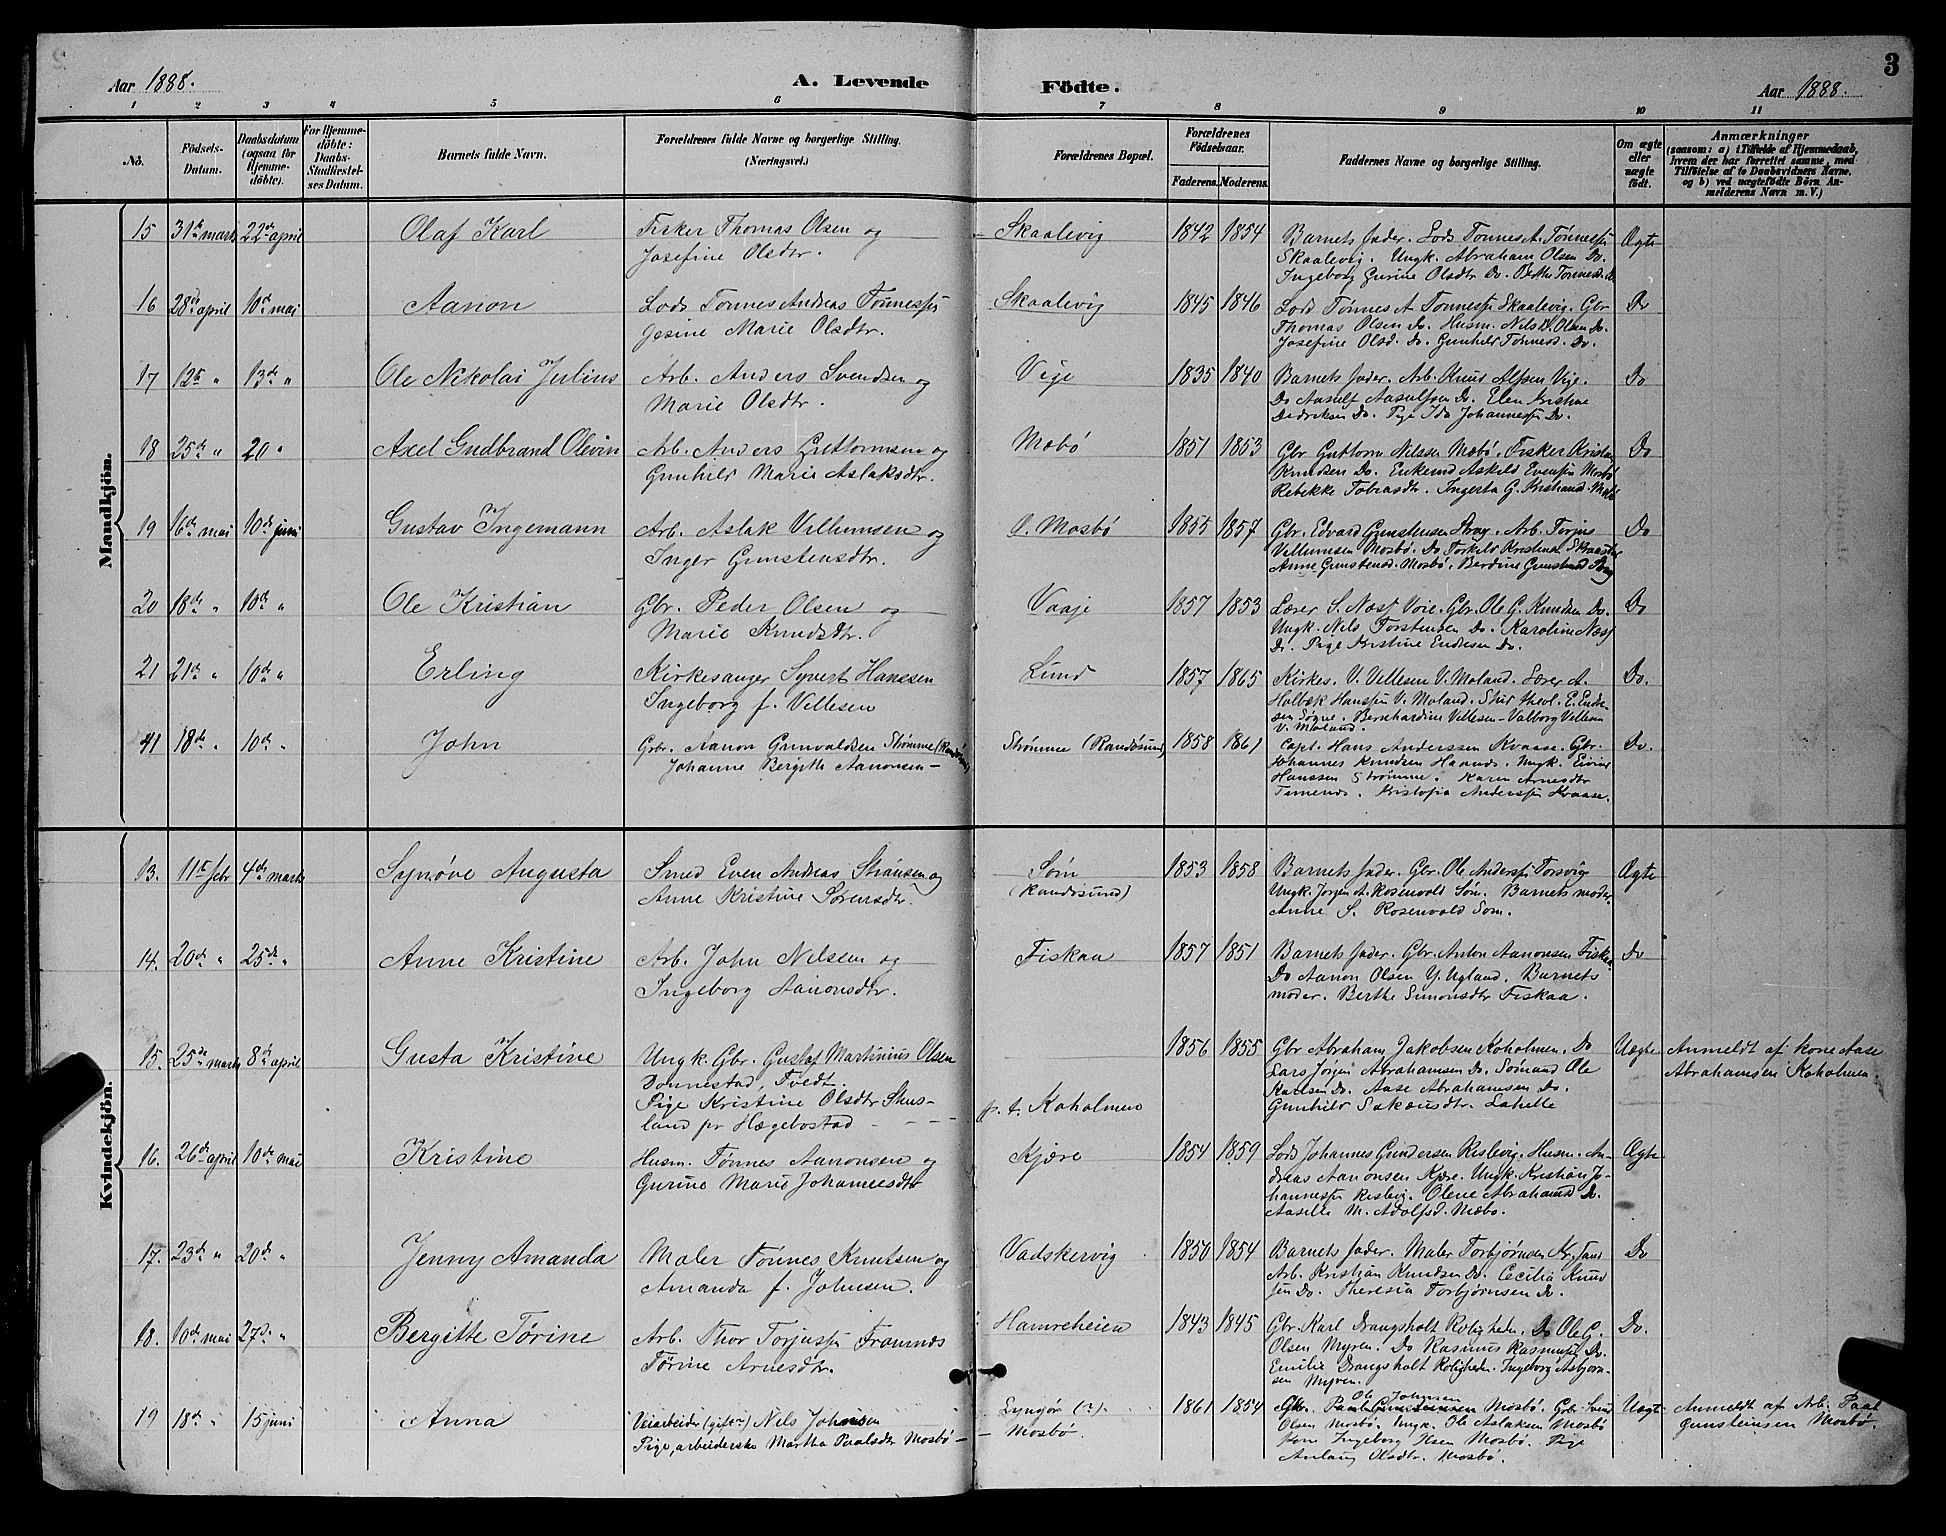 Aar 1888.
A. Levende Födte.
Aar 1888.
3
1 2 3 4 5 6 7 8 9 10 11
No.
Födsels-Datum.
Daabsdatum (ogsaa for Hjemme-döbte).
For Hjemme-döbte: Daabs-Stadfæstel-ses Datum.
Barnets fulde Navn.
Forældrenes fulde Navne og borgerlige Stilling.
(Næringsvei.)
Forældrenes Bopæl.
Forældrenes Födselsaar.
Faderens. Moderens.
Faddernes Navne og borgerlige Stilling.
Om ægte eller uægte födt.
Anmærkninger
(saasom: a) i Tilfælde af Hjemmedaab,
hvem der har forrettet samme, med
Tilföielse af to Daabsvidners Navne,
og b) ved uægtefödte Börn An-
melderens Navn m. V.)
Mandkjön.
15 31te marts 22de april Olaf Karl Fisker Thomas Olsen og Skaalevig 1842 1854 Barnets fader. Lods Tønnes A. Tønness. Ægte
Josefine Olsdtr. Skaalevig. Ungk. Abraham Olsen Do.
Ingeborg Gurine Olsdtr Do. Berthe Tønnesd. Do
16 28de april 10de mai Aanon Lods Tønnes Andreas Tønnessen Skaalevig 1845 1846 Lods Tønnes A Tønness. Skaalevig. Gbr Do
Gesine Marie Olsdtr. Thomas Olsen Do. Husm. Nils D. Olsen Do.
Josefine Olsd. Do. Gunhild Tønnesd. Do.
17 12te " 13de " Ole Nikolai Julius Arb. Anders Svendsen og Vige 1835 1840 Barnets fader. Arb. Knud Alfsen Vige. Do
Marie Olsdtr. Do Aasulf Aasulfsen Do. Elen Kristine
Dedriksen Do. Pige Ida Johannessen Do.
18 25de " 20 " Axel Gudbrand Olevin Arb. Anders Guttormsen og Mæbø 1851 1853 Gbr Guttorm Nilssen Mæbø. Fisker Kristen Do
Gunhild Marie Aslaksdtr. Knudsen Do. Enkemd Askild Evensen Mosbø
Rebekke Tobiasdtr. Ingerta G. Kristiansd. Mæbø
19 16de mai 10de juni Gustav Ingemann Arb. Aslak Villumsen og O. Mosbø 1855 1857 Gbr. Edvard Gunstensen Strag. Arb. Torjus Do
Inger Gunstensdtr. Villumsen Mosbø. Do Torkild Kristensen
Anne Gunstensd. Mosbø. Berdine Gunstensd Strag
20 18de " 10de " Ole Kristian Gbr. Peder Olsen og Vaaje 1857 1853 Lærer S. Næss Voie. Gbr. Ole G. Knudsen Do. Do
Marie Knudsdtr. Ungk. Nils Torstensen Do. Karoline Næss
Do. Pige Kristine Endresen Do.
21 21de " 10de " Erling Kirkesanger Syvert Hanssen Lund 1857 1865 Kirkes. V. Villesen V. Moland. Lærer A. Do.
Ingeborg f. Villesen Holbæk Hanssen V. Moland. Stud theol. E. Ende-
sen Søgne. Bernhardine Villesen - Valborg Villesen
V. Moland.
41 18de " 10de " John Gbr. Aanon Gunvaldsen Strømme (Randøsund) Strømme (Randøsund) 1858 1861 Capt. Hans Anderssen Kvaase. Gbr. Do.
Johanne Bergitte Aanonsen - Johannes Knudsen Haanes. Ungk. Eivind
Hanssen Strømme. Karen Arnesdtr
Timenes. Kristofia Anderssen Kvaase.
Kvindekjön.
13. 11te febr 4de marts Synøve Augusta Smed Even Andreas Strausen og Søm 1853 1858 Barnets fader. Gbr. Ole Anderss. Torsvig Ægte
Anne Kristine Sørensdtr. (Randøsund) Ungk. Jørgen A. Rosenvold Søm. Barnets moder.
Anne S. Rosenvold Søm.
14. 20de " 25de " Anne Kristine Arb. John Nilssen og Fiskaa 1857 1851 Barnets fader. Gbr. Anton Aanonsen Fiskaa Do
Ingeborg Aanonsdtr. Do Aanon Olsen Y. Ugland. Barnets
moder. Berthe Simonsdtr Fiskaa.
15. 25de marts 8de april Gusta Kristine Ungk. Gbr. Gustaf Martinius Olsen 1856 1855 Gbr Abraham Jakobsen Koholmen. Do Uægte Anmeldt af kone Aase
Donnestad, Tvedt. Lars Jørgen Abrahamsen Do. Sømand Ole Abrahamsen Koholmen.
Pige Kristine Olsdtr Skus- p. t. Koholmen Karlsen Do. Aase Abrahamsen Do.
land pr Hægebostad - - - - Gunhild Sakeusdtr. Lahelle
16. 26de april 10de mai Kristine Husm. Tønnes Aanonsen og Kjære 1854 1859 Lods Johannes Gundersen Risløvig. Husm. An- Ægte
Gurine Marie Johannesdtr dreas Aanonsen Kjære. Ungk. Kristian Jo-
hanness. Olene Abrahamsd Do.
Aaselle M. Adolfsd. Mæbø.
17. 23de " 20de " Jenny Amanda Maler Tønnes Knutsen og Vadskervig 1850 1854 Barnets fader. Maler Torbjørnsen Kr.sand Do
Amanda f. Johnsen. Arb. Kristian Knudsen Do. Cecilia Knud
sen Do. Theresia Torbjørnsen Do.
18. 10de mai 27de " Bergitte Tørine Arb. Thor Torjussen Framnæs Hamreheien 1843 1845 Gbr. Karl Drangsholt Roligheden. Do Ole G. Do.
Tørine Arnesdtr. Olsen Myren. Do Rasmus Rasmussen Do.
Emilie Drangsholt Roligheden. Ingeborg Asbjørn-
sen Myren.
19 18de " 15 juni Anna Veiarbeider (gift?) Nils Johnsen Lyngør (?) 1861 1854 Gbr. Ole Johnsen Mosbø. Gbr. Svend Uægte Anmeldt af Arb. Paal
Pige, arbeiderske Martha Paalsdtr Mosbø - Mosbø. Olsen Mosbø. Ungk. Ole Aslaksen Mosbø Gunsteinsen Mosbø.
Kone Ingeborg Mosbø. Pige
Anlaug Olsdtr. Mosbø.